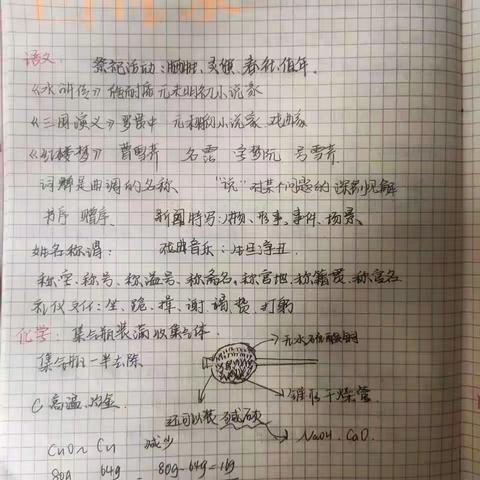 语文:
祭祀活动:腊祭、灵
《水浒传》施耐庵 元末明初小说家
《三国演义》罗贯中 元末明初小说家 戏曲家
《红楼梦》 曹雪芹 名霑 字梦阮 号雪芹
词牌是曲调的名称、 "说"对某个问题的深刻见解
书序 赠序、 新闻特写:人物、故事、事件、场景、
姓名称谓: 戏曲音乐:生旦净丑
称字、称号、称谥号、称斋名、称官地、称籍贯、称官名
礼仪文化:坐、跪、揖、谢、谒、赞、
化学: 集气瓶装满收集气体
集气瓶一半去除
无水硫酸铜
球形干燥管
C 高温、冶金
还可以装 碱石灰
NaOH、CaO.
CuO ~ Cu 减少
80g 64g = 80g-64g=16g